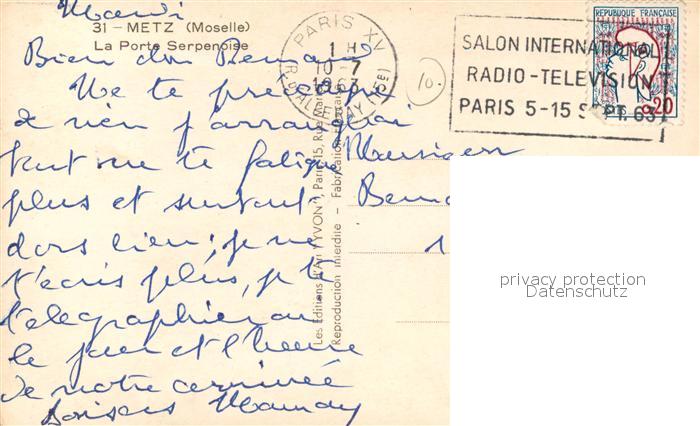 Mardi
31 - METZ (Moselle)
La Porte Serpenoise
Bien cher Bernard
Ne te préoccupe
de rien j'arrangerai
tout ne te fatigue
plus et surtout
dors bien; je ne
t'écris plus, je te
télégraphierai
le jour et l'heure
de notre arrivée
Baisers Maman
PARIS XV
1 H
10-7
1963
SALON INTERNATIONAL
RADIO-TELEVISION
PARIS 5-15 SEPT. 63
REPUBLIQUE FRANÇAISE
0,20
10
Monsieur
Les Editions d'Art "YVON", Paris, 15, Rue
Reproduction interdite - Fabrication Française
privacy protection
Datenschutz